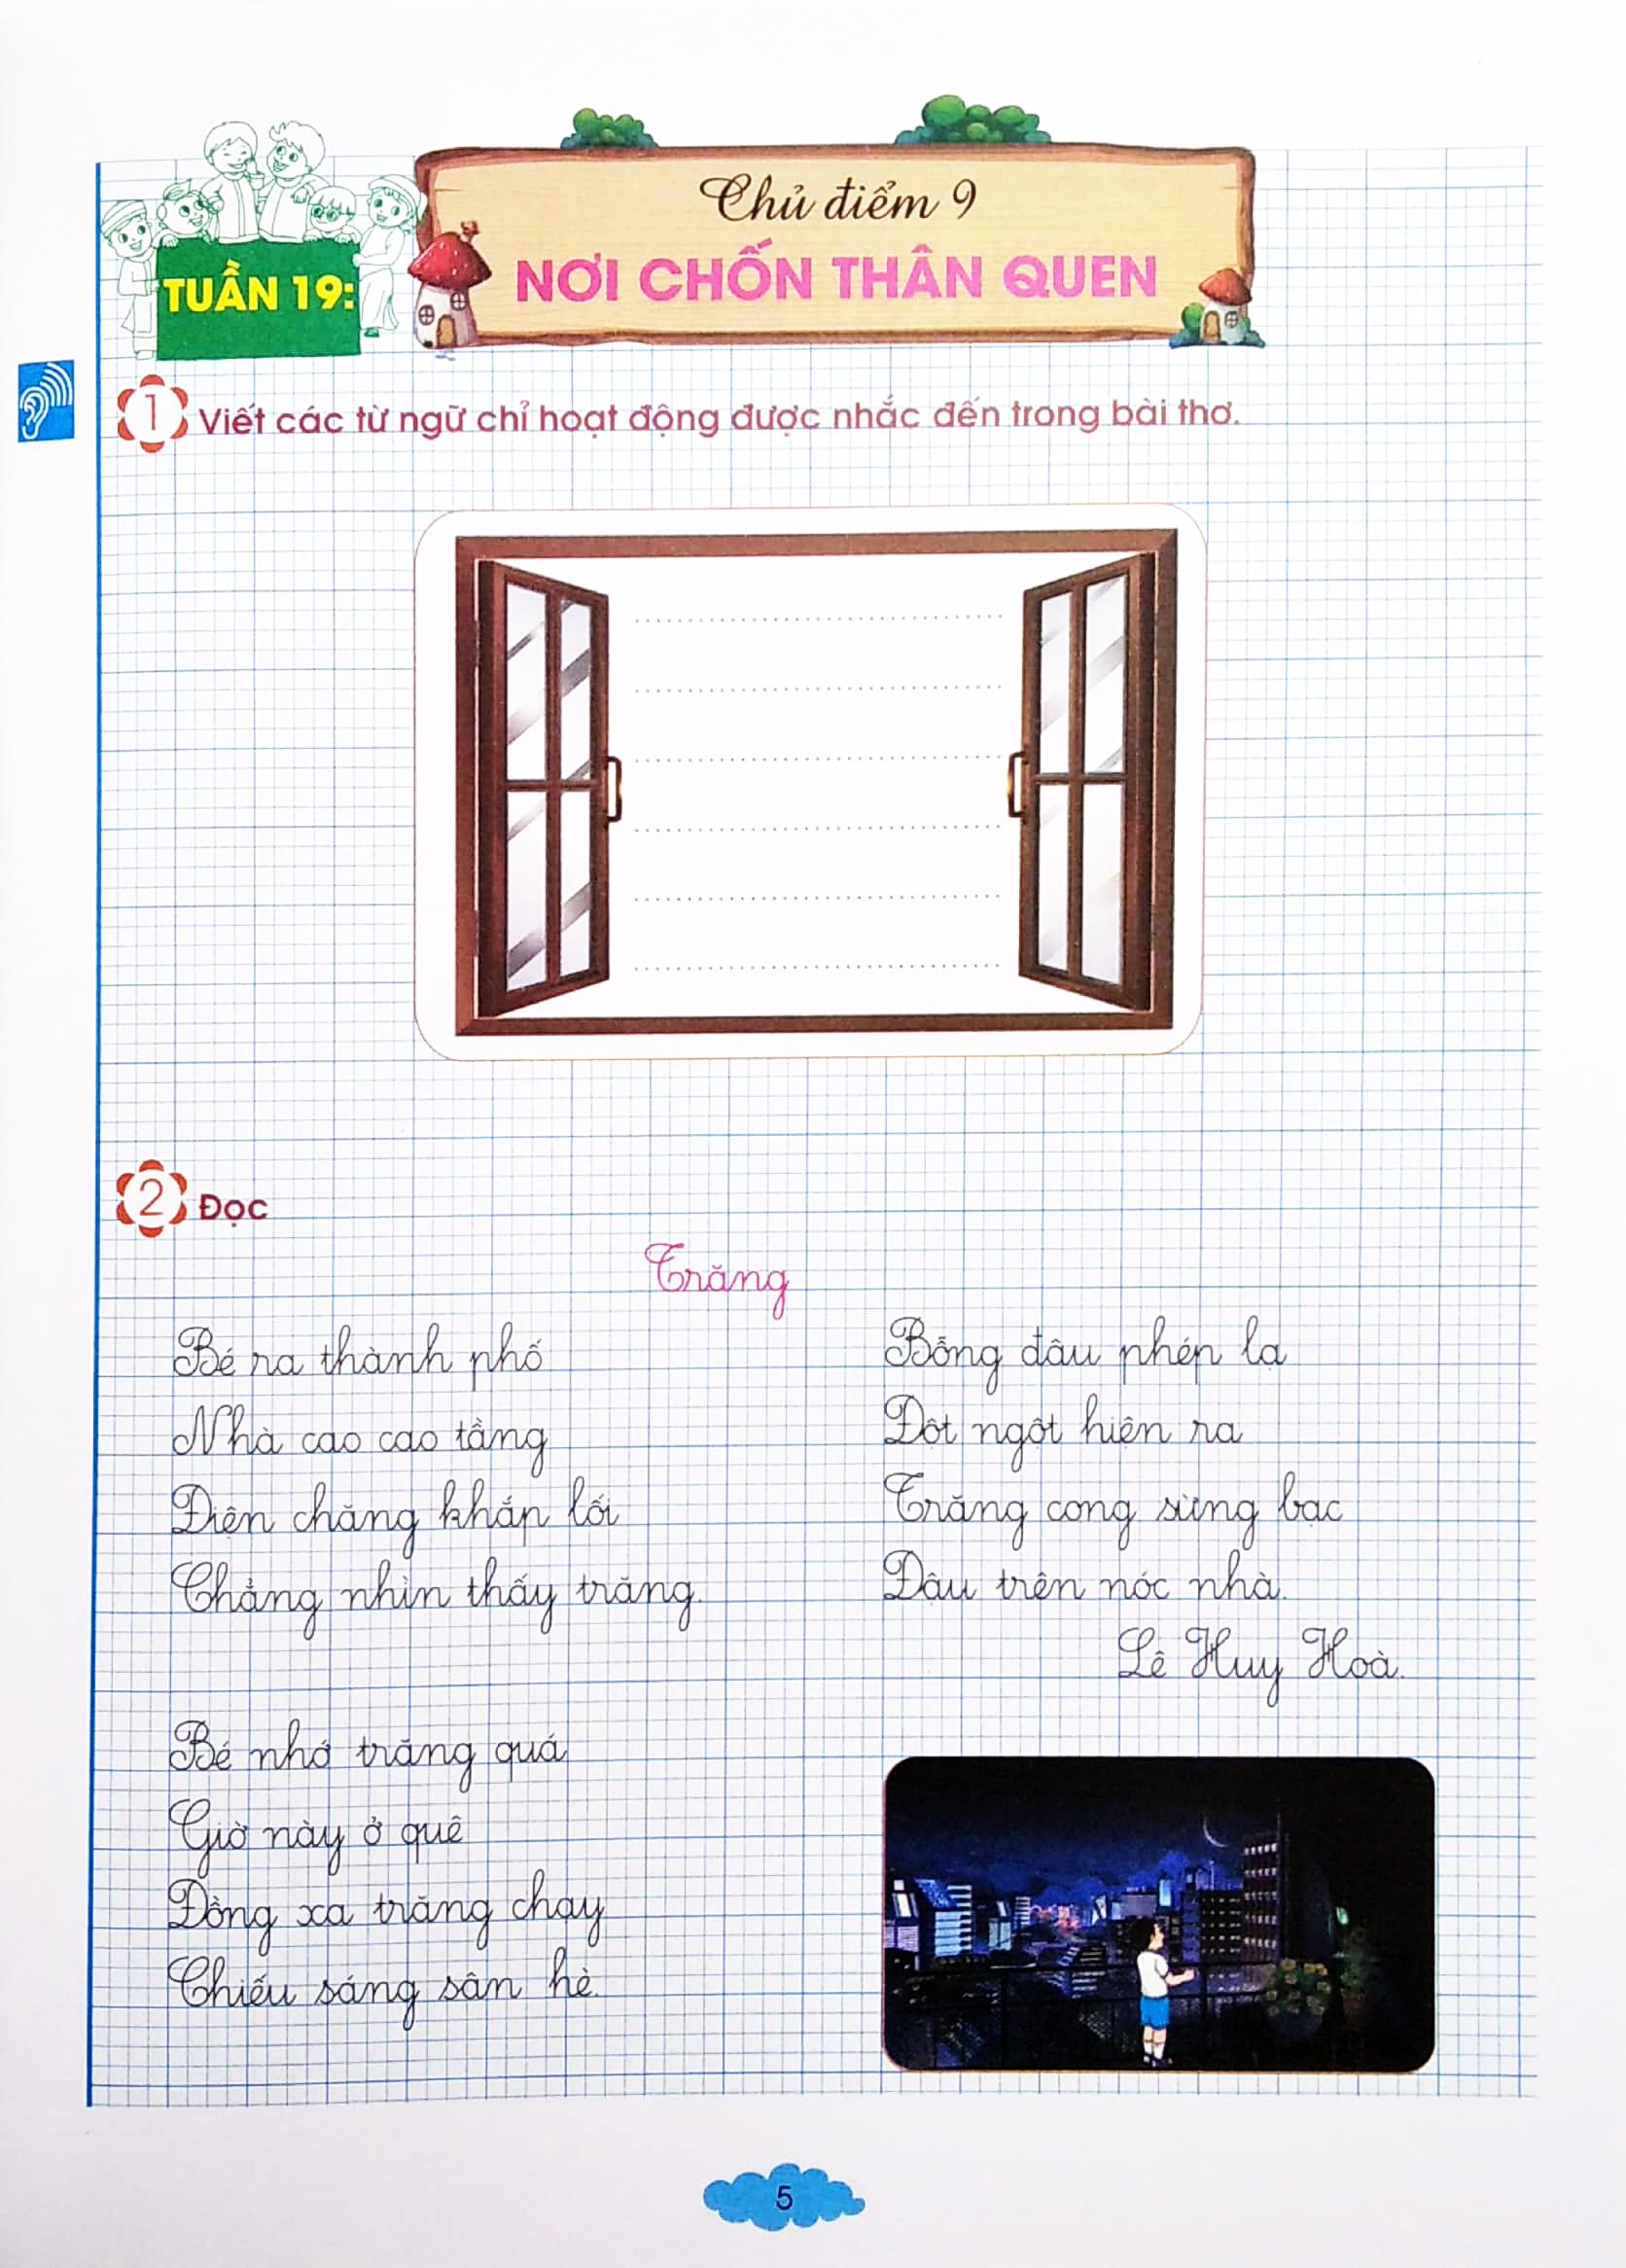 TUẦN 19:
Chủ điểm 9
NƠI CHỐN THÂN QUEN
1 Viết các từ ngữ chỉ hoạt động được nhắc đến trong bài thơ.
2 Đọc
Trăng
Bé ra thành phố
Nhà cao cao tầng
Điện chăng khắp lối
Chẳng nhìn thấy trăng.
Bé nhớ trăng quá
Giờ này ở quê
Đồng xa trăng chạy
Chiếu sáng sân hè.
Bỗng đâu phép lạ
Đột ngột hiện ra
Trăng cong sừng bạc
Đậu trên nóc nhà.
Lê Huy Hoà.
5